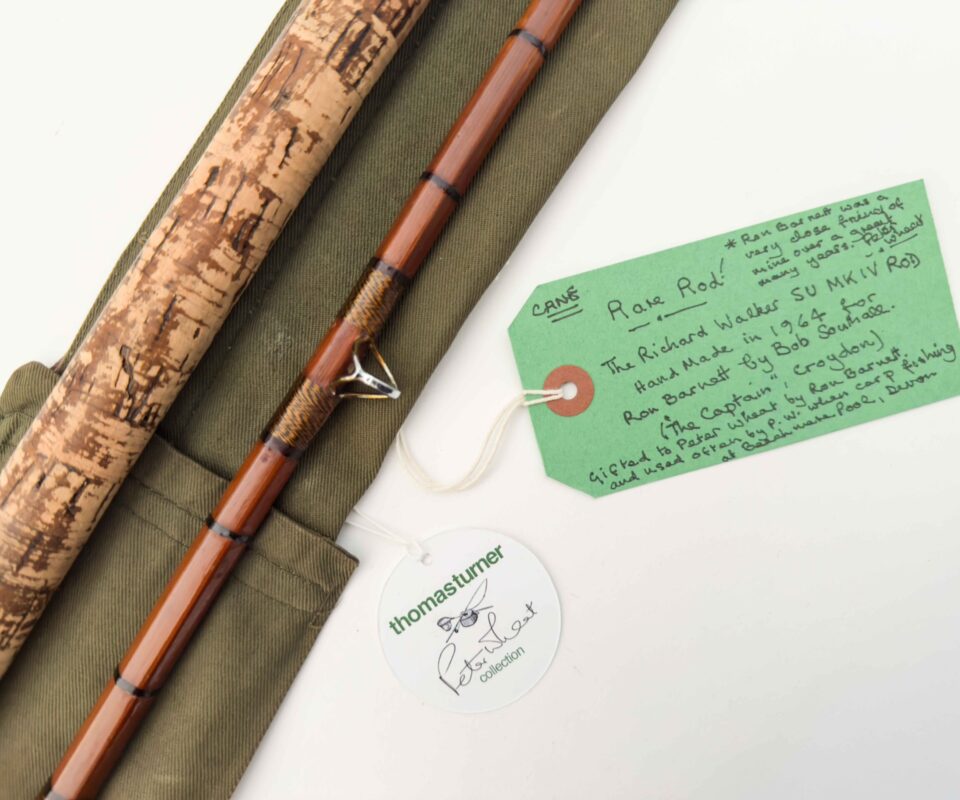 CANE
Rare Rod!
* Ron Barnett was a
very close friend of
mine over a great
many years. Peter
Wheat
The Richard Walker SU MK IV ROD
Hand Made in 1964 for
Ron Barnett by Bob Southall.
("The Captain", Croydon)
Gifted to Peter Wheat by Ron Barnett
and used often by P.W. when carp fishing
at Pool, Devon
thomasturner
Peter Wheat
collection